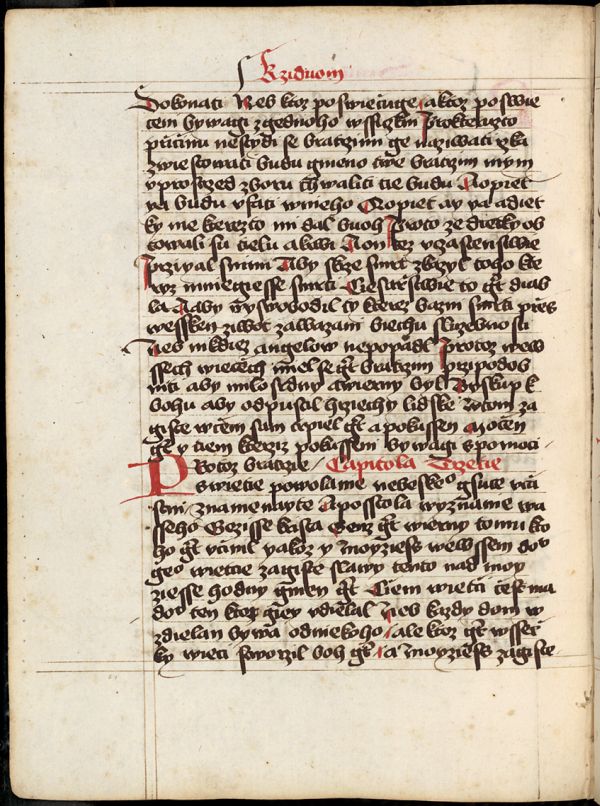 K ziduom
dokonati Neb ktoz poswieciuge a ktoz poswie
ceni bywagi z gednoho wssizkni Prokterazto
przicinu nestydi se bratrzimi ge nazywati rzka
zwiestowati budu gmeno twe bratrzim mym
v prostrzed zboru chwaliti tie budu A opiet
ia budu vfati w nieho A opiet ay ia a diet
ky me kerezto mi dal buoh Proto ze dietky ob
cowali su tielu a krwi I on tez vczastenstwie
przyial s nimi Aby skrze smrt zkazyl toho kte
ryz mniegiesse smrti Ciesarzstwie to gest diab
la A aby wyswobodil ty kterez bazni smrti przes
wessken ziwot zawazani biechu sluzebnosti
Neb nikdiez angelow nepopadl Protoz we w
ssech wiecech miel se gest bratrzim przipodob
niti aby milosrdny a wierny byl Biskup k
bohu aby odpustil hrziechy lidske W tom za
giste w cem sam trpiel gest a pokussen Mocen
gest y tiem kteziz pokusseni bywagi spomoci
Protoz bratrzie Capitola Trzetie
swietie powolanie nebeskeo gsuce vcz
stni znamenayte Aposstola wyznanie na
sseho Gezisse krista Genz gest wierny tomu kto
ho gest vcinil yakoz y Moyziess we wssem domu
geo wietcie zagiste slawy tento nad moy
ziesse hodny gmien gest Ciem wietci czest ma
domu ten ktoz gey vdielal Neb kazdy dom w
zdielan bywa od niekoho ale ktoz gest wssec
ky wieci stworzil boh gest A Moyziess zagiste